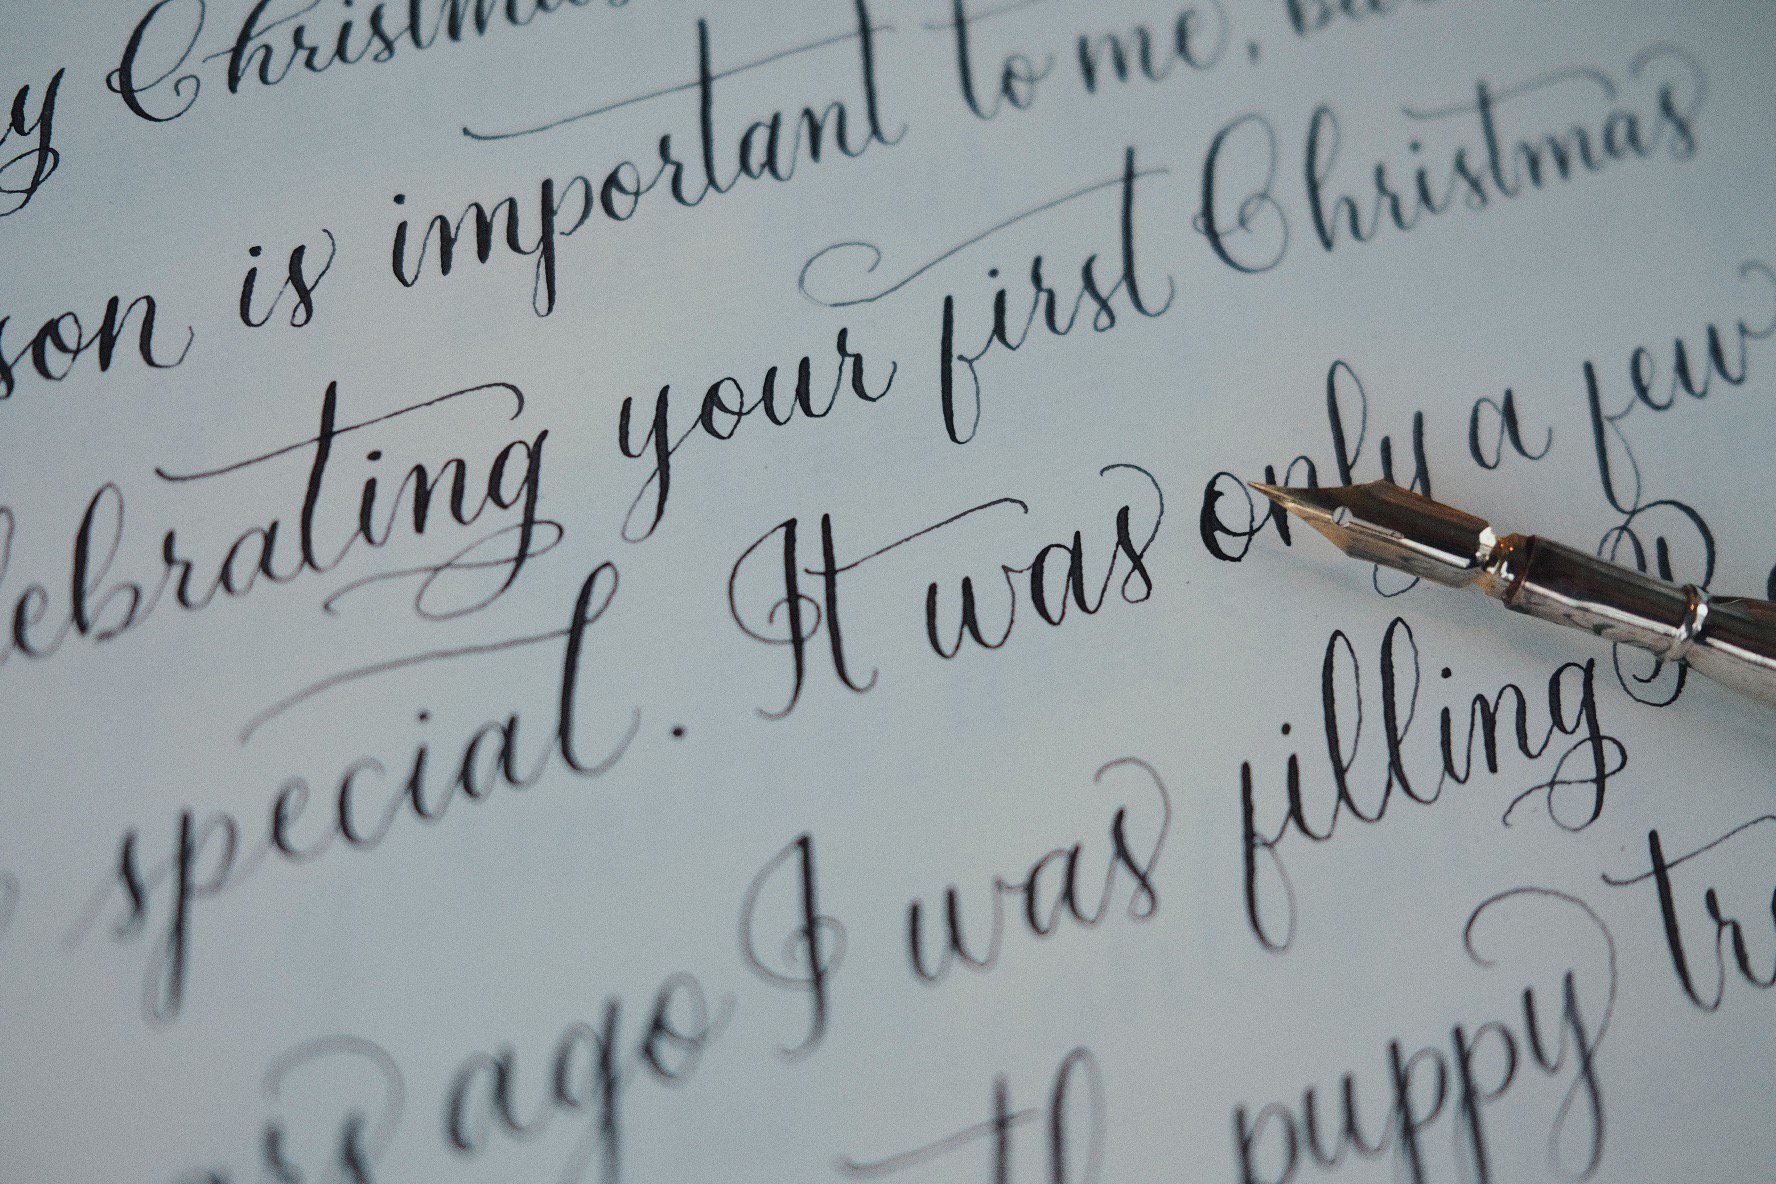 Christmas
is important to me,
your first Christmas
special. It was only a few
ago I was filling
puppy